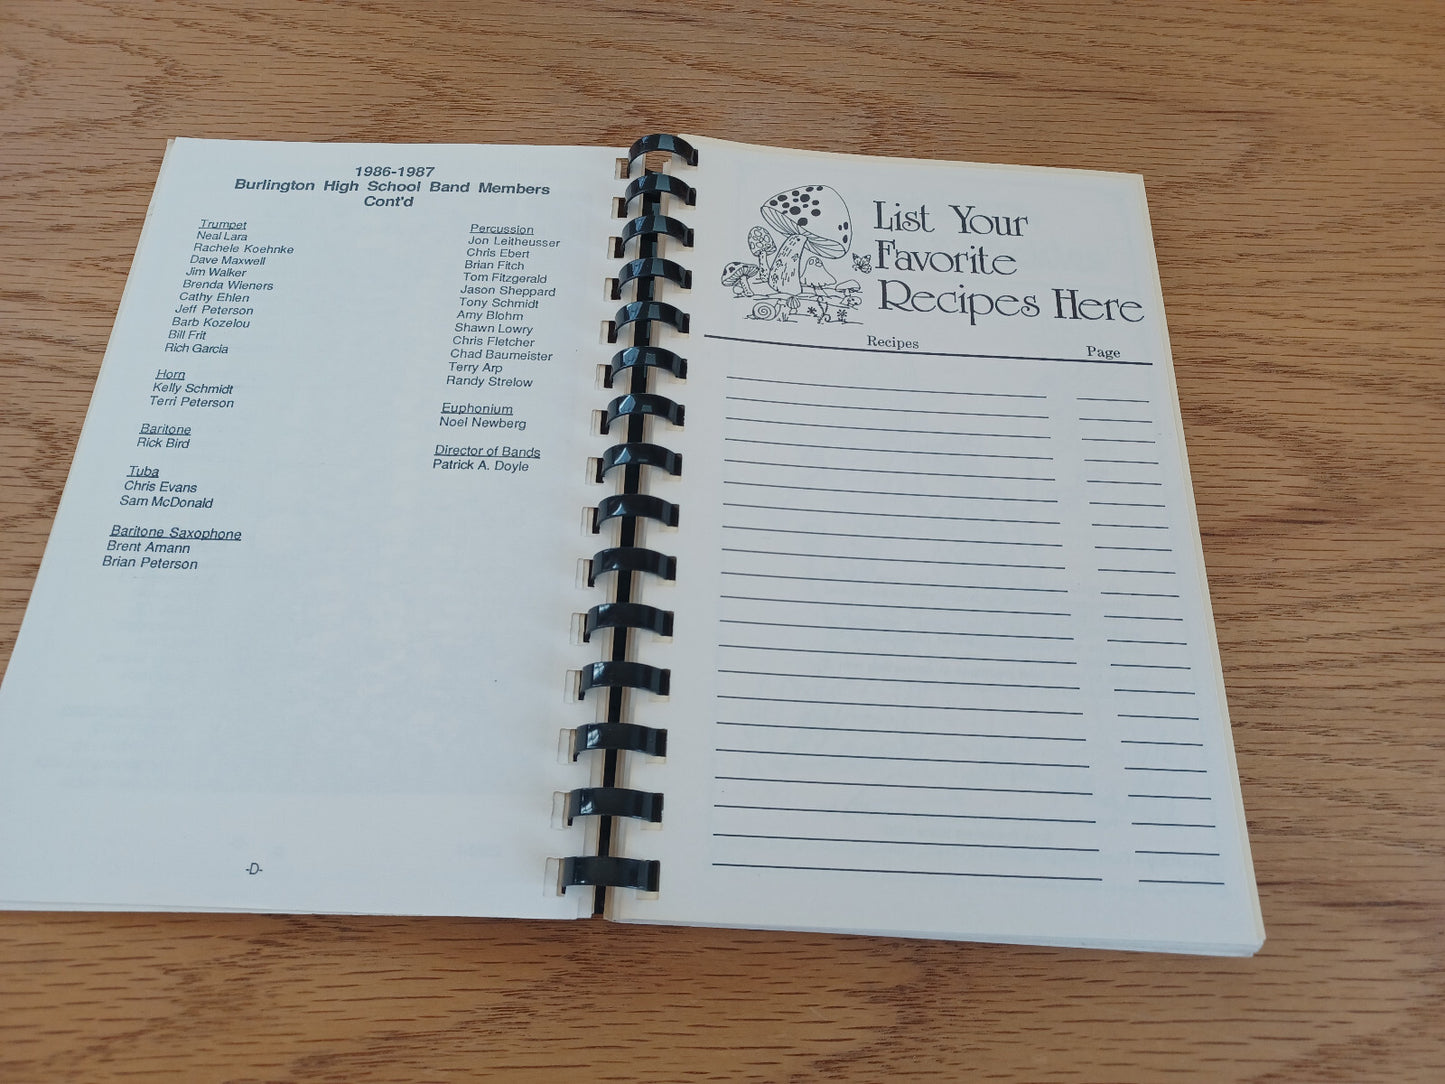 1986-1987
Burlington High School Band Members
Cont'd
Trumpet
Neal Lara
Rachele Koehnke
Dave Maxwell
Jim Walker
Brenda Wieners
Cathy Ehlen
Jeff Peterson
Barb Kozelou
Bill Frit
Rich Garcia
Horn
Kelly Schmidt
Terri Peterson
Baritone
Rick Bird
Tuba
Chris Evans
Sam McDonald
Baritone Saxophone
Brent Amann
Brian Peterson
Percussion
Jon Leitheusser
Chris Ebert
Brian Fitch
Tom Fitzgerald
Jason Sheppard
Tony Schmidt
Amy Blohm
Shawn Lowry
Chris Fletcher
Chad Baumeister
Terry Arp
Randy Strelow
Euphonium
Noel Newberg
Director of Bands
Patrick A. Doyle
-D-
List Your
Favorite
Recipes Here
Recipes Page